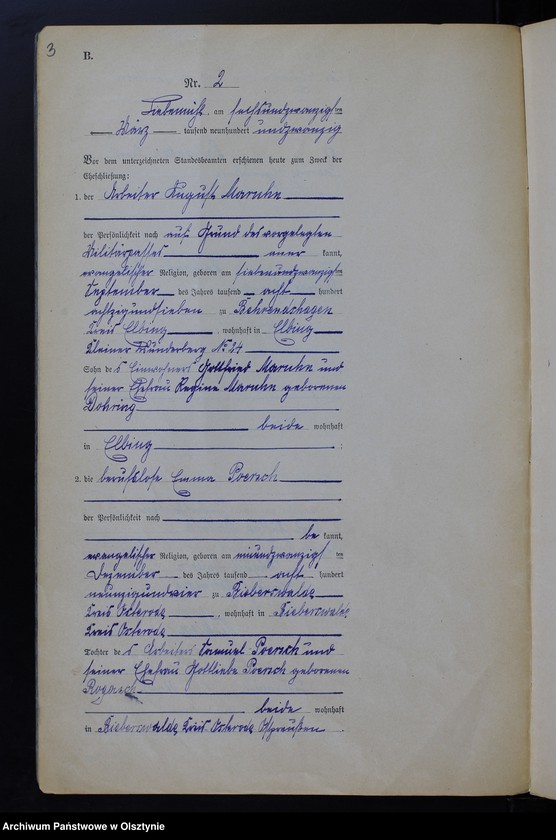 3
B.
Nr. 2
Liebemühl, am sechsundzwanzigsten
März tausend neunhundert undzwanzig
Vor dem unterzeichneten Standesbeamten erschienen heute zum Zweck der
Eheschließung:
1. der Arbeiter August Maruhn
der Persönlichkeit nach auf Grund des vorgelegten
Militärpasses aner kannt,
evangelischer Religion, geboren am siebenundzwanzigsten
September des Jahres tausend acht hundert
achtzigundsieben zu Behrendshagen
Kreis Elbing, wohnhaft in Elbing
Kleiner Wunderberg No 24
Sohn des Einwohners Gottfried Maruhn und
seiner Ehefrau Regine Maruhn geborenen
Döhring
beide wohnhaft
in Elbing ;
2. die berufslose Emma Poersch
der Persönlichkeit nach
be kannt,
evangelischer Religion, geboren am neunundzwanzigsten
Dezember des Jahres tausend acht hundert
neunzigundvier zu Bieberswalde
Kreis Osterode, wohnhaft in Bieberswalde
Kreis Osterode
Tochter des Arbeiters Samuel Poersch und
seiner Ehefrau Gottliebe Poersch geborenen
beide wohnhaft
in Bieberswalde Kreis Osterode Ostpreußen
Archiwum Państwowe w Olsztynie